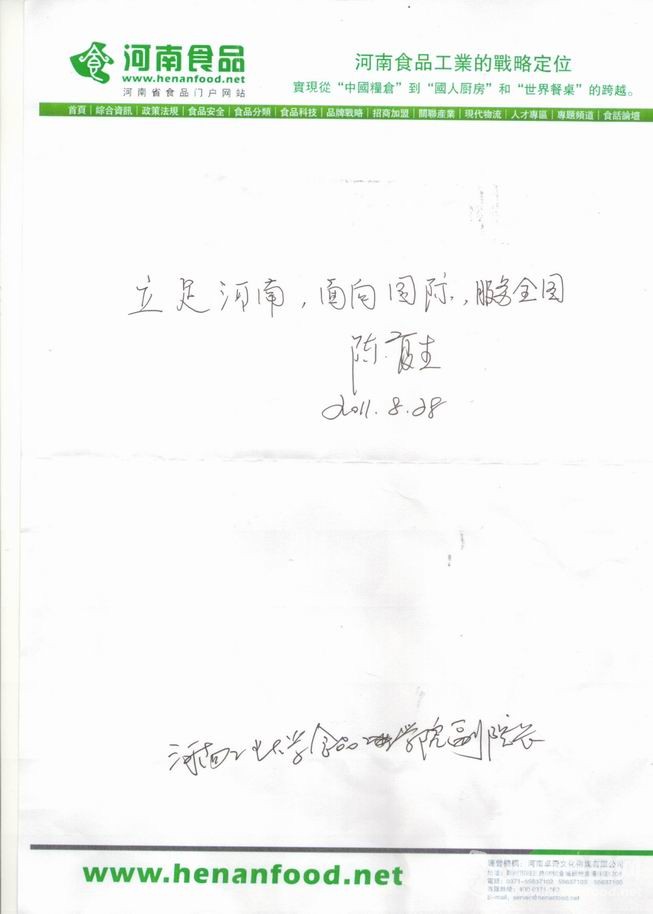 河南食品
www.henanfood.net
河南省食品门户网站
河南食品工業的戰略定位
實現從“中國糧倉”到“國人厨房”和“世界餐桌”的跨越。
首頁|綜合資訊|政策法規|食品安全|食品分類|食品科技|品牌戰略|招商加盟|關聯産業|現代物流|人才專區|專題頻道|食話論壇
立足河南，面向国际，服务全国
陈复生
2011.8.28
河南工业大学食品学院副院长
www.henanfood.net
電話：0371-55637102 55637103